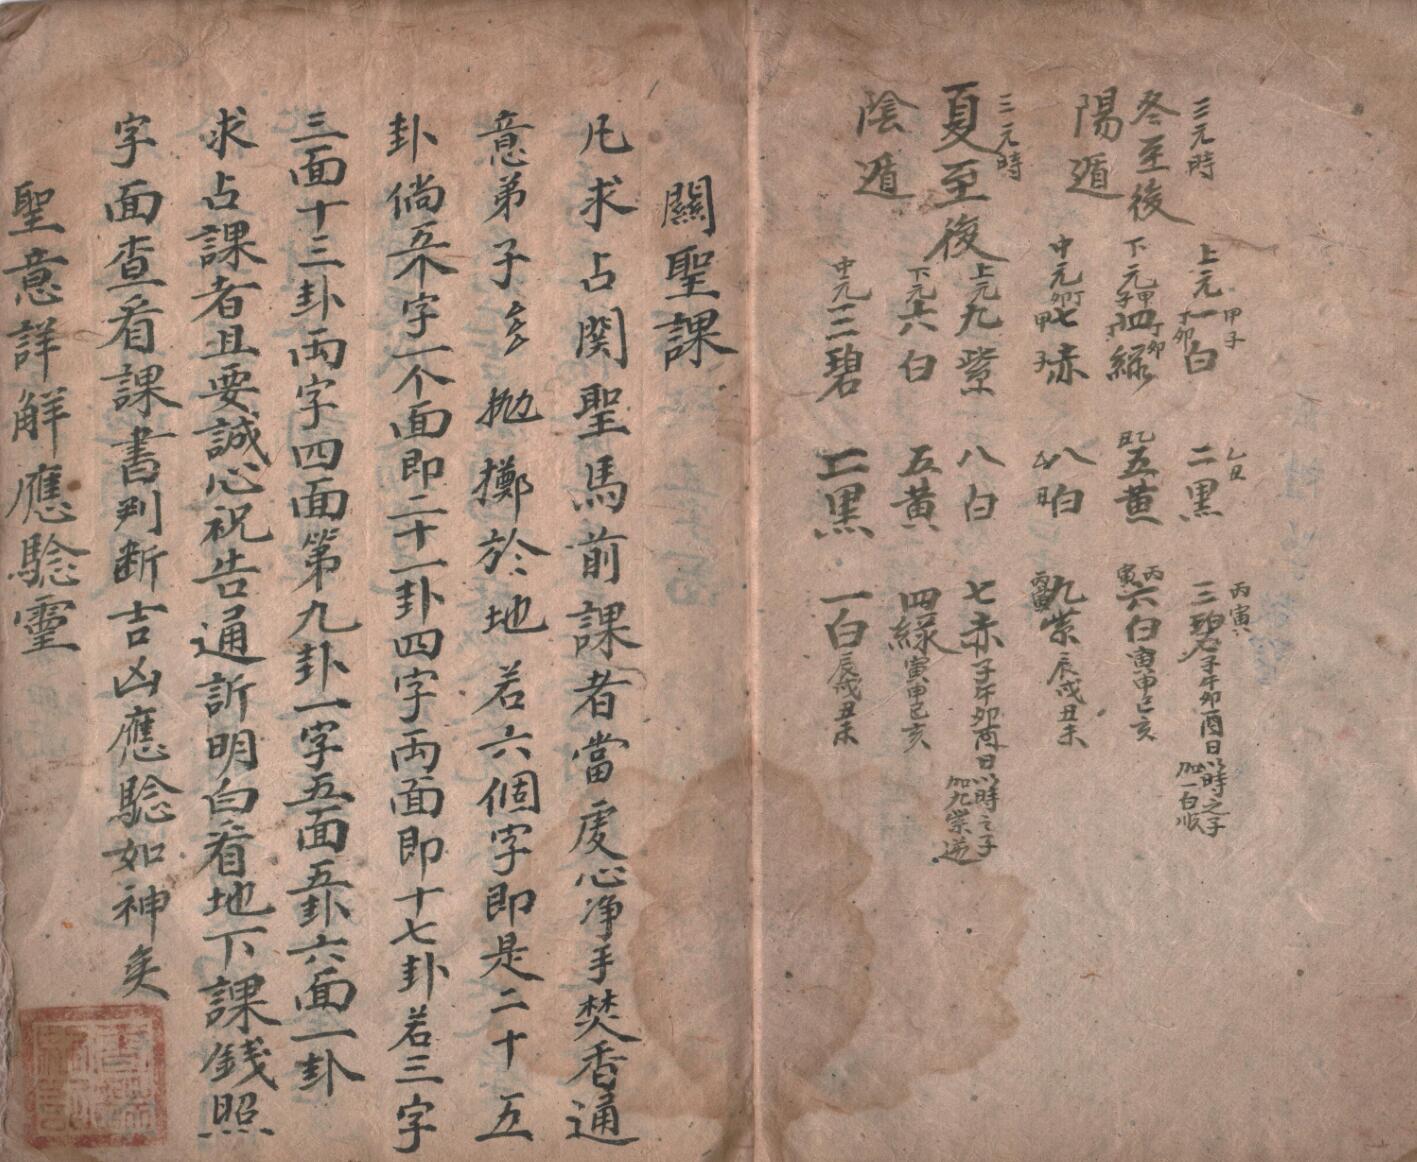 三元時
冬至後
陽遁
上元一白 甲子 丁卯 二黑 乙丑 三碧 丙寅 子午卯酉日以時之子
加一白順
下元四綠 甲子 丁卯 五黃 六白 丙寅 寅申巳亥
中元七赤 甲子 八白 九紫 丙寅 辰戌丑未
三元時
夏至後
陰遁
上元九紫 八白 七赤 子午卯酉日以時之子
加九紫逆
下元六白 五黃 四綠 寅申巳亥
中元三碧 二黑 一白 辰戌丑未
關聖課
凡求占関聖馬前課者當虔心净手焚香通
意弟子 拋擲於地若六個字即是二十五
卦倘五个字一个面即二十一卦四字両面即十七卦若三字
三面十三卦両字四面第九卦一字五面五卦六面一卦
求占課者且要誠心祝告通訴明白看地下課錢照
字面查看課書判断吉凶應騐如神矣
聖意詳解應騐靈